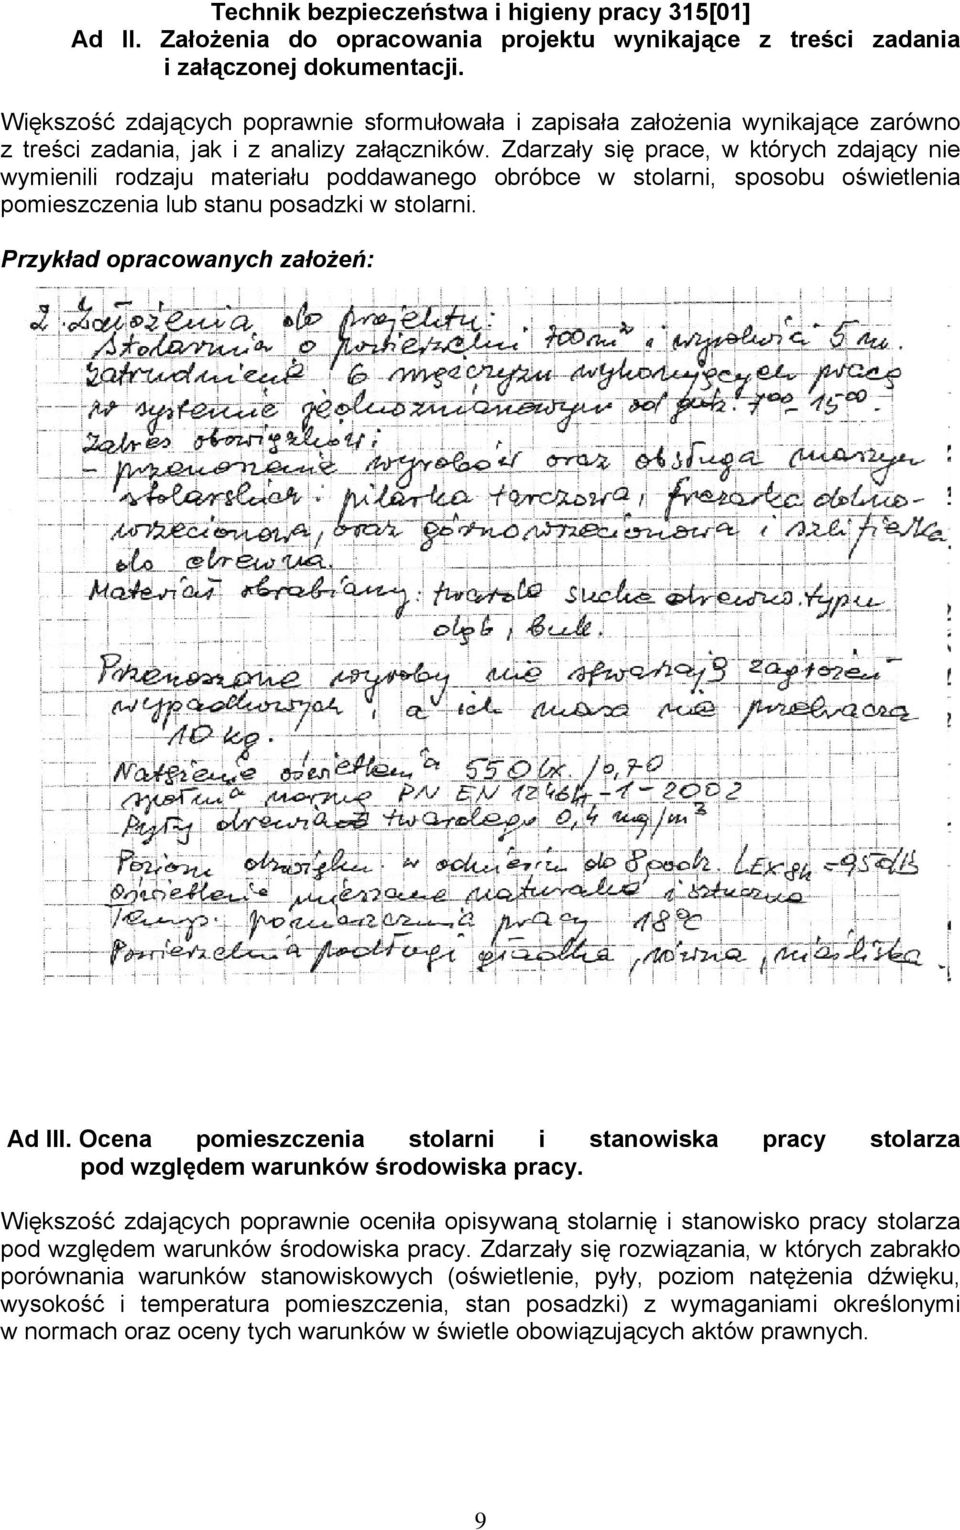 Technik bezpieczeństwa i higieny pracy 315[01]
Ad II. Założenia do opracowania projektu wynikające z treści zadania
i załączonej dokumentacji.
Większość zdających poprawnie sformułowała i zapisała założenia wynikające zarówno
z treści zadania, jak i z analizy załączników. Zdarzały się prace, w których zdający nie
wymienili rodzaju materiału poddawanego obróbce w stolarni, sposobu oświetlenia
pomieszczenia lub stanu posadzki w stolarni.
Przykład opracowanych założeń:
2. Założenia do projektu:
Stolarnia o powierzchni 700m² i wysokości 5 m.
Zatrudnienie 6 mężczyzn wykonujących pracę
w systemie jednozmianowym od godz. 7⁰⁰ - 15⁰⁰.
Zakres obowiązków:
- przenoszenie wyrobów oraz obsługa maszyn
stolarskich: pilarka tarczowa, frezarka dolno-
wrzecionowa, oraz górnowrzecionowa i szlifierka
do drewna.
Materiał obrabiany: twarde suche drewno typu
dąb, buk.
Przenoszone wyroby nie stwarzają zagrożeń
wypadkowych, a ich masa nie przekracza
10 kg.
Natężenie oświetlenia 550 lx. /0,70
spełnia normę PN EN 12464-1-2002
Pyły drewna twardego 0,4 mg/m³
Poziom dźwięku w odniesin do 8 godz. LEx 8h = 95 dB
Oświetlenie mieszane naturalne i sztuczne
Temp. pomieszczenia pracy 18°C
Powierzchnia podłogi gładka, równa, nieśliska.
Ad III. Ocena pomieszczenia stolarni i stanowiska pracy stolarza
pod względem warunków środowiska pracy.
Większość zdających poprawnie oceniła opisywaną stolarnię i stanowisko pracy stolarza
pod względem warunków środowiska pracy. Zdarzały się rozwiązania, w których zabrakło
porównania warunków stanowiskowych (oświetlenie, pyły, poziom natężenia dźwięku,
wysokość i temperatura pomieszczenia, stan posadzki) z wymaganiami określonymi
w normach oraz oceny tych warunków w świetle obowiązujących aktów prawnych.
9